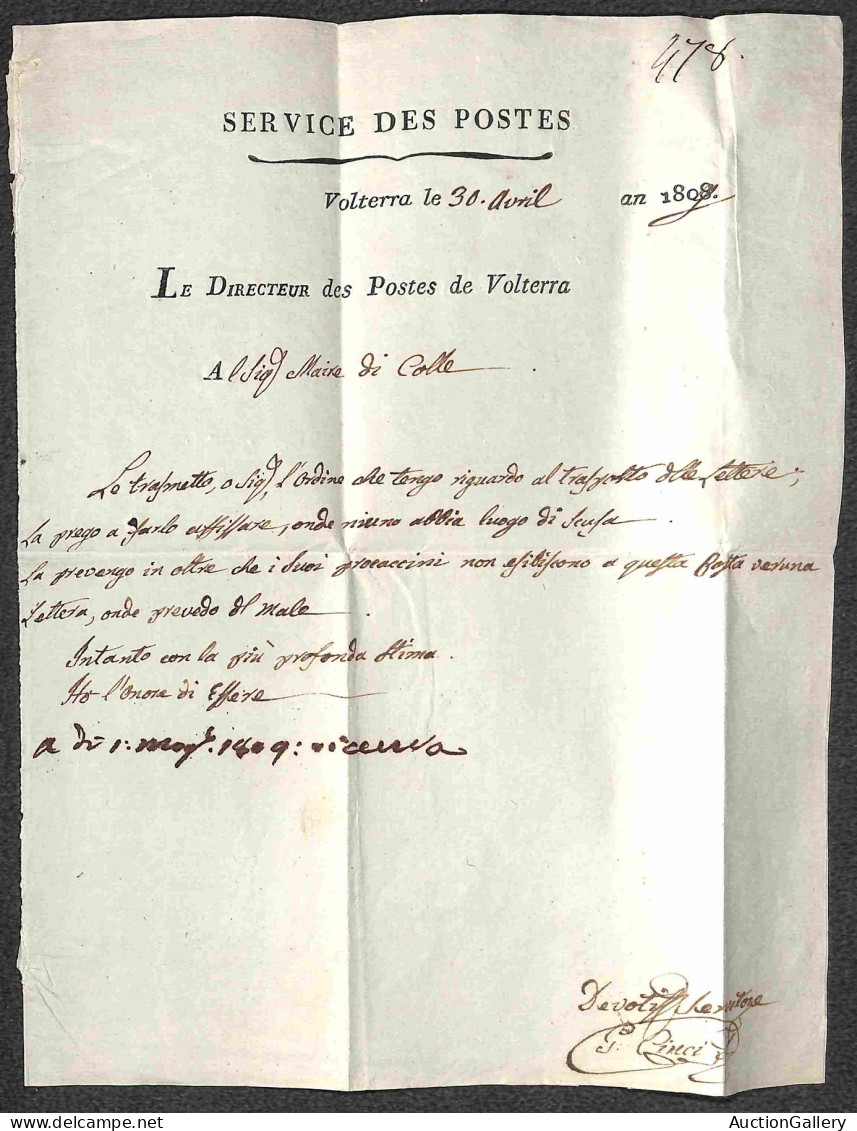 478.
SERVICE DES POSTES
Volterra le 30. Avril an 1809.
LE DIRECTEUR des Postes de Volterra
Al Sig.r Maire di Colle
Le trasmetto, o Sig.r, l'Ordine che tengo riguardo al trasporto delle Lettere;
La prego a farlo affissare, onde niuno abbia luogo di Scusa
La prevengo in oltre che i Suoi procaccini non esibiscono a questa Posta veruna
Lettera, onde prevedo del male
Intanto con la più profonda Stima.
Ho l'Onore di Essere
a dì 1: Magg. 1809: ricevuta
Devotiss Servitore
G: Cinci
AuctionGallery